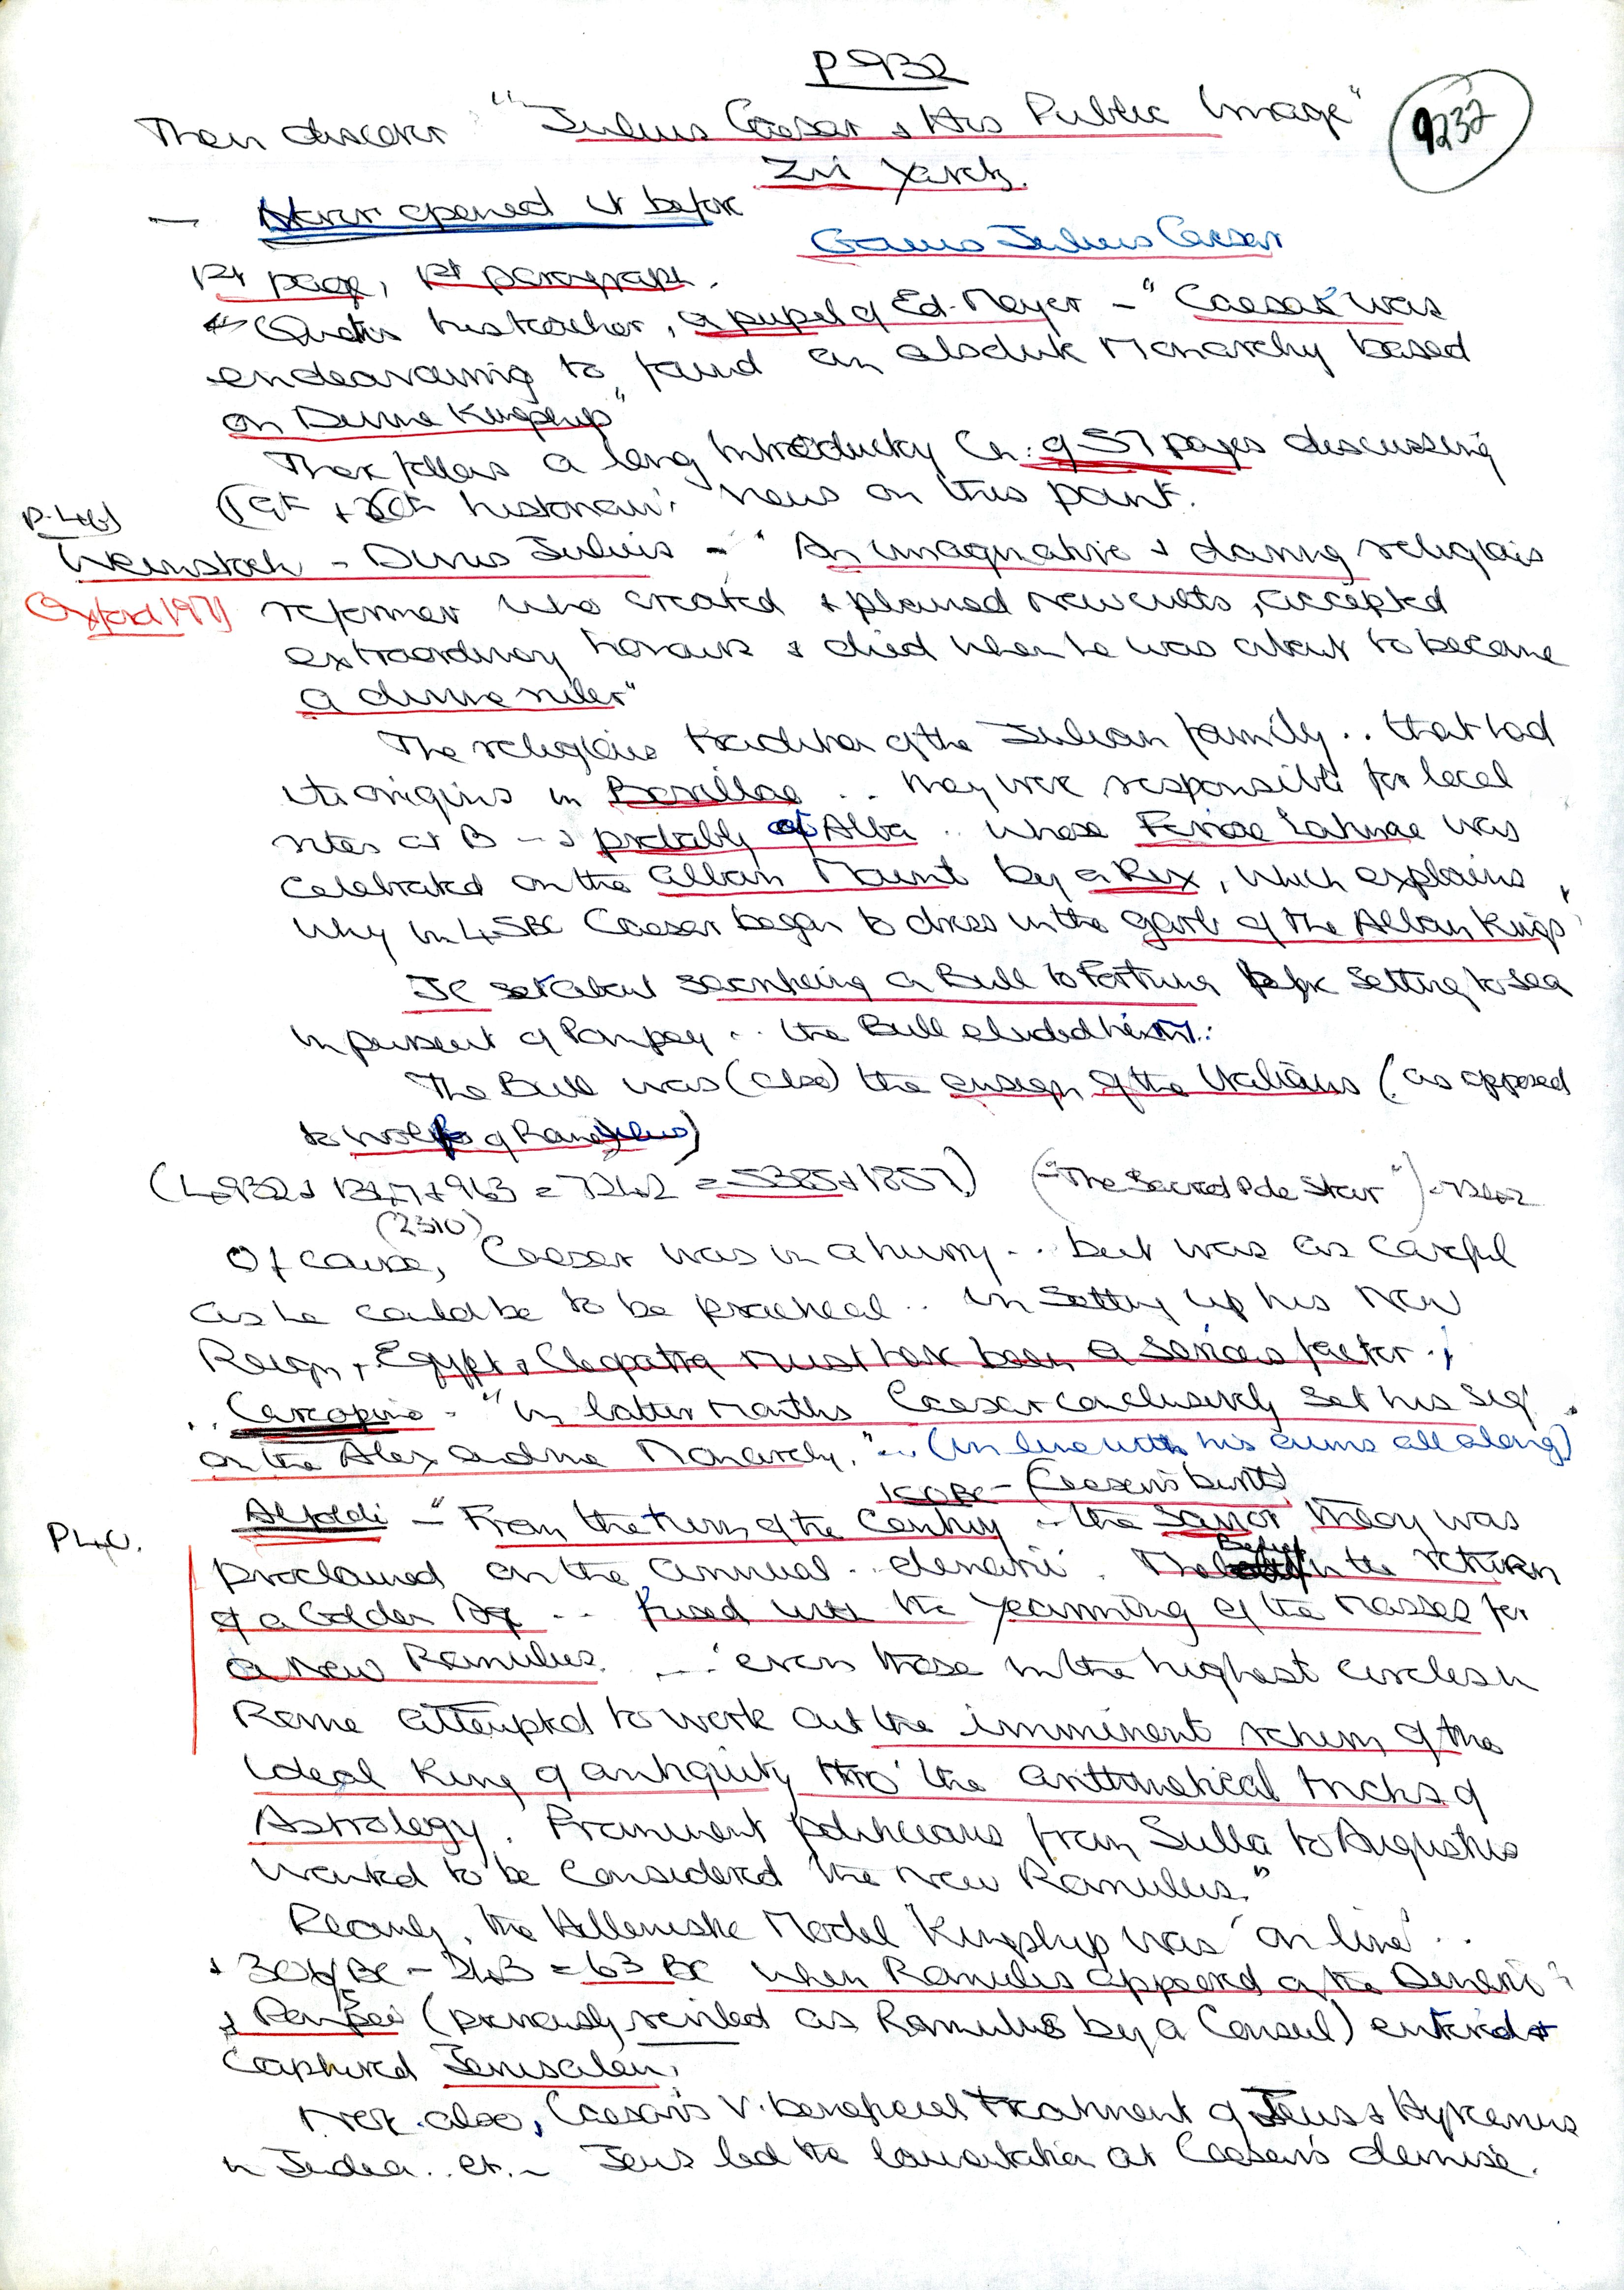 P 932
9232
Then discover "Julius Caesar & His Public Image"
Zvi Yavetz.
— Never opened it before
Gaius Julius Caesar
1st page, 1st paragraph.
Quotes his teacher, a pupil of Ed. Meyer - "Caesar was
endeavouring to found an absolute Monarchy based
on Divine Kingship"
There follows a long Introductory Ch. of 57 pages discussing
19th + 20th historians' views on this point.
Weinstock - Divus Julius - "An imaginative & daring religious
Oxford 1971
reformer who created & planned new cults, accepted
extraordinary honours & died when he was about to become
a divine ruler"
The religious tradition of the Julian family .. that had
its origins in Bovillae .. they were responsible for local
rites at B - & probably at Alba .. whose Feriae Latinae was
celebrated on the Alban Mount by a Rex, which explains
why in 45BC Caesar began to dress in the garb of the Alban Kings'
JC set about sacrificing a Bull to Fortuna before setting to sea
in pursuit of Pompey .. the Bull eluded him!!
The Bull was (also) the ensign of the Italians (as opposed
to wolf of Romulus)
(4932 + 1347 + 963 = 7242 = 5385 + 1857) (-"The Sacred Pole Star") = 7242
(2310)
Of course, Caesar was in a hurry .. but was as careful
as he could be to be practical .. in setting up his New
Reign, & Egypt & Cleopatra must have been a serious factor .
.. Carcopino - "in latter months Caesar conclusively set his sights
on the Alexandrine Monarchy," .. (in line with his aims all along)
100BC - (Caesar's birth)
P40.
Alfoldi - "From the turn of the Century .. the Savior theory was
proclaimed on the annual .. denarii. The Belief in the return
of a Golden Age .. fused with the yearning of the masses for
a new Romulus. ... even those in the highest circles in
Rome attempted to work out the imminent return of the
ideal King of antiquity thro' the arithmetical tricks of
Astrology. Prominent politicians from Sulla to Augustus
wanted to be considered the New Romulus."
Clearly, the Hellenistic Model Kingship was 'on line' ..
+ 306/BC - 243 = 63 BC when Romulus appeared on the Denarii
& Pompey (previously reviled as Romulus by a Consul) entered &
captured Jerusalem.
Note also, Caesar's v. beneficial treatment of Jews & Hyrcanus
in Judea .. etc. - Jews led the lamentation at Caesar's demise.